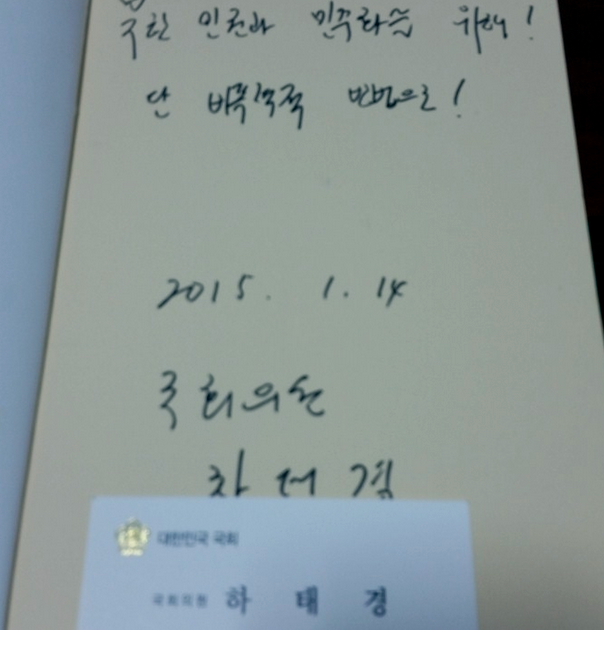 북한 인권과 민주화를 위해!
단 비폭력적 방법으로!
2015. 1. 14
국회의원
하 태 경
대한민국 국회
국회의원 하 태 경